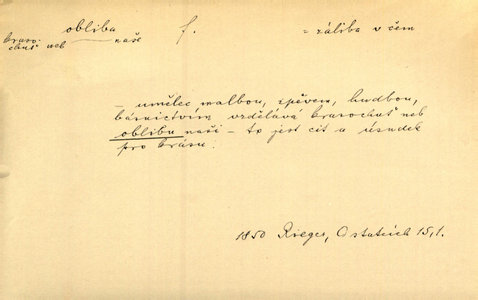 obliba f. = záliba v čem
krasochuť neb naše
— umělec malbou, zpěvem, hudbou,
básnictvím vzdělává krasochuť neb
oblibu naši — to jest cit a úsudek
pro krásu.
1850 Rieger, O statcích 15,1.